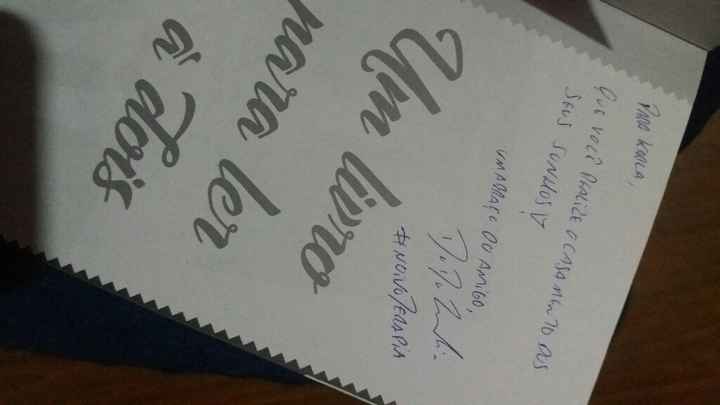 Para Karla,
Que você realize o casamento dos
seus sonhos!
Um abraço do amigo,
#NOIVOTERAPIA
Um livro
para ler
à dois